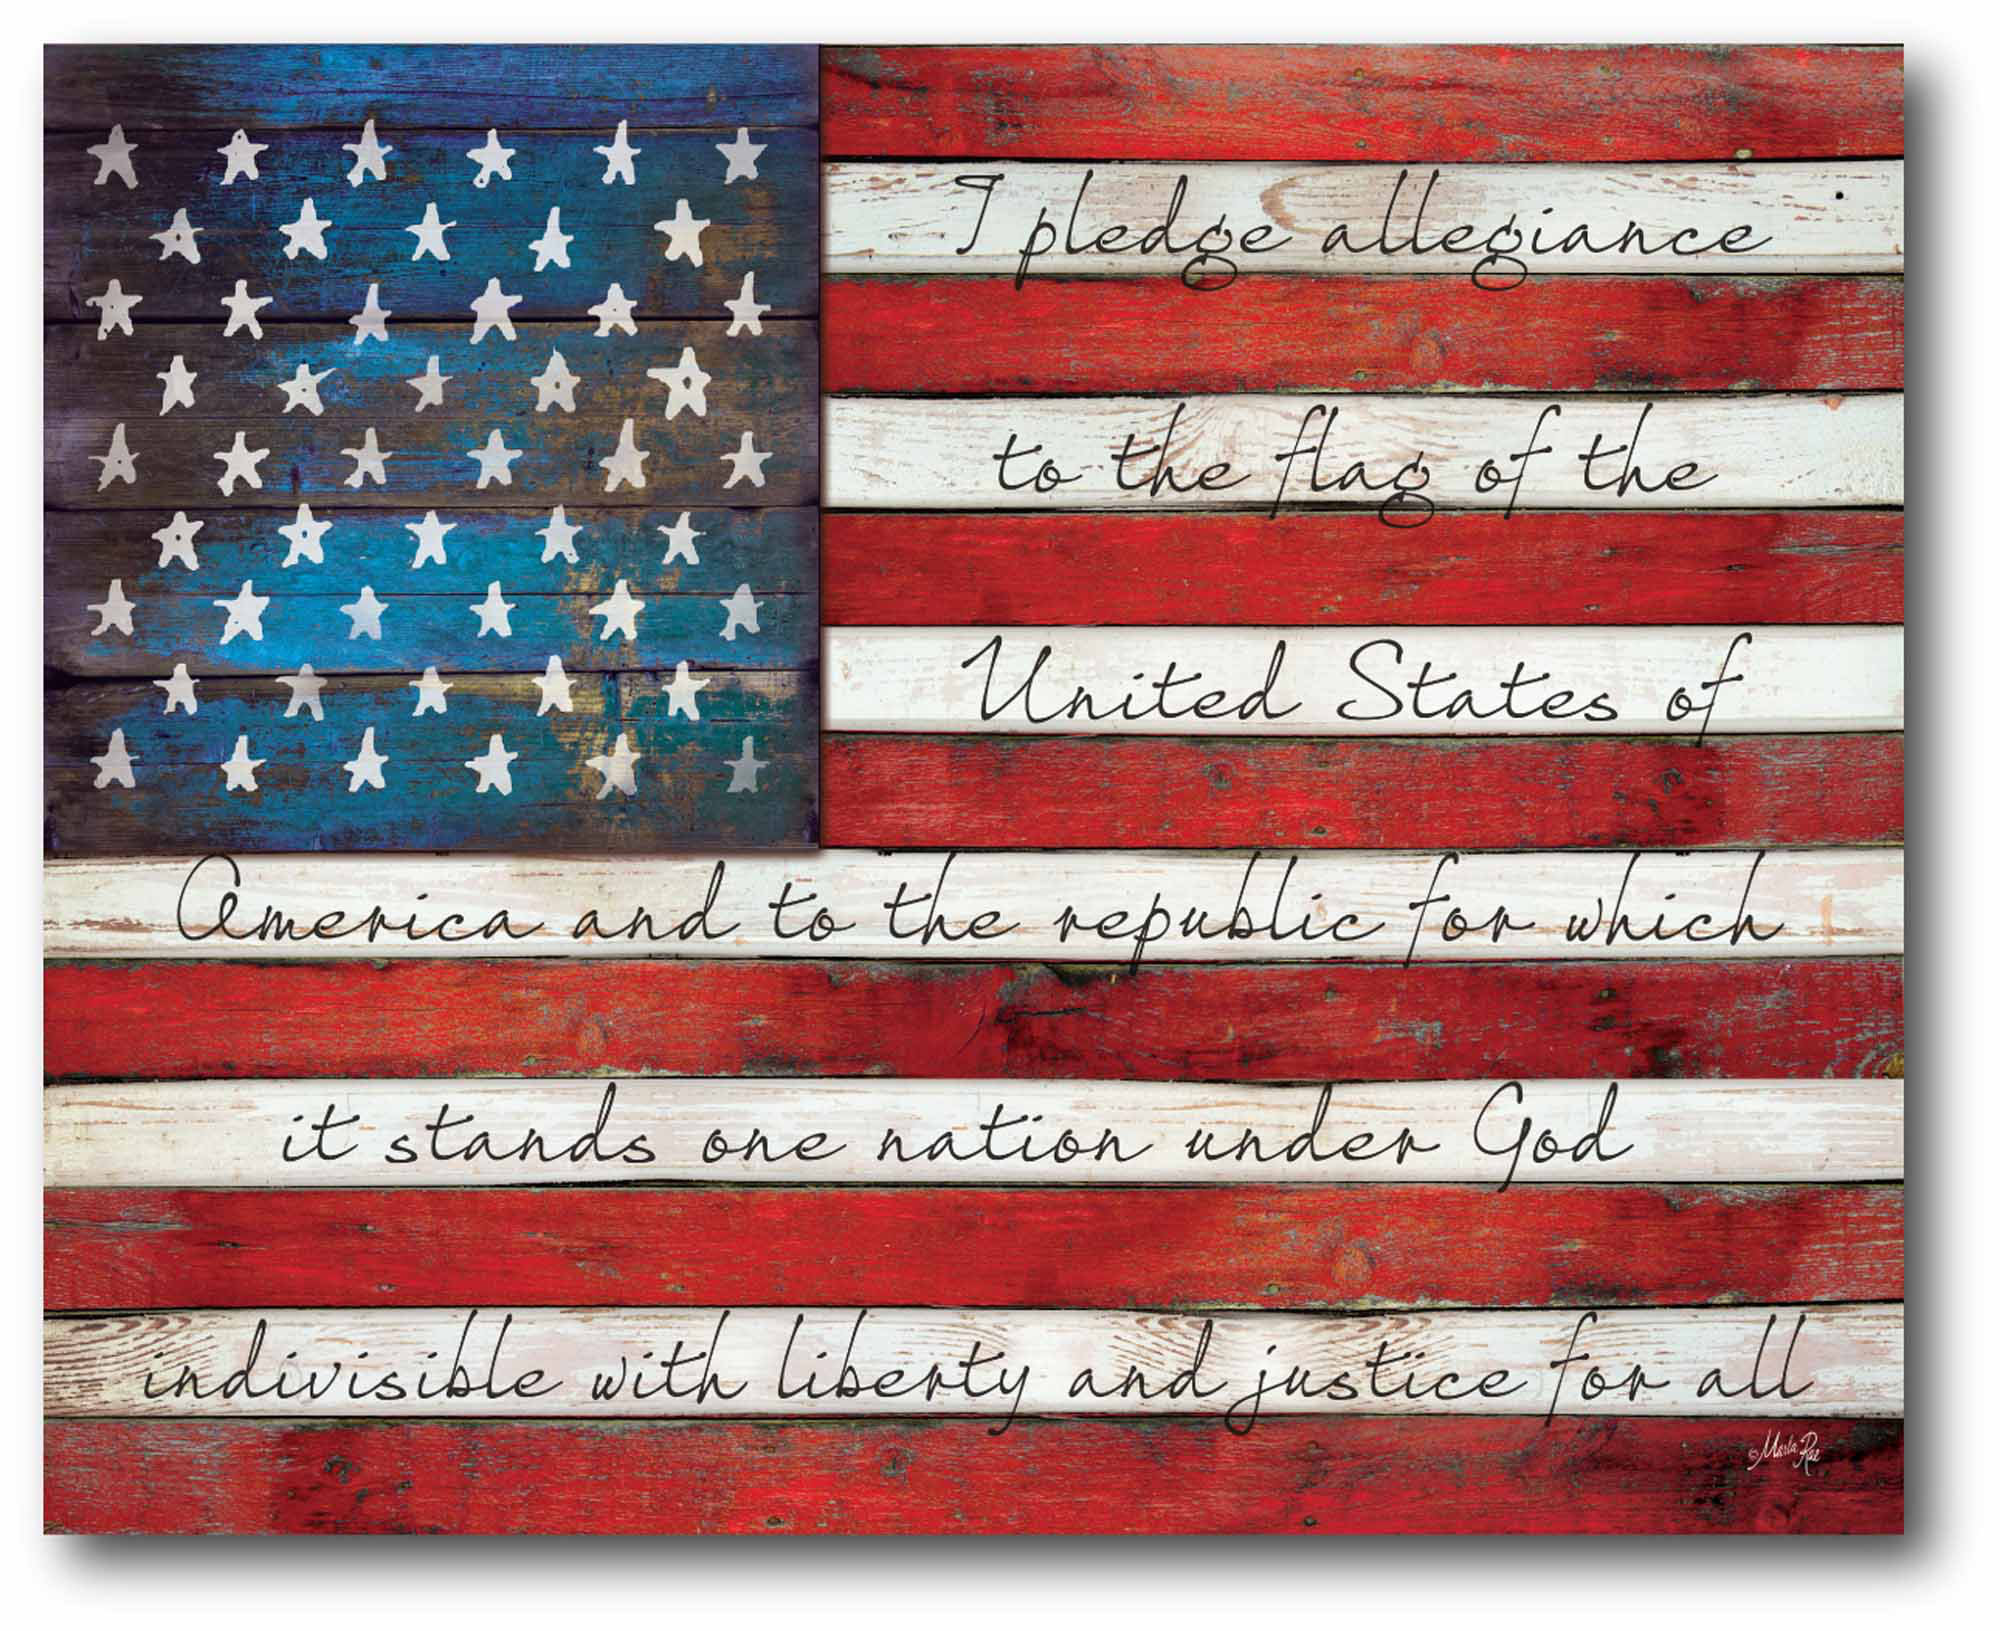 I pledge allegiance
to the flag of the
United States of
America and to the republic for which
it stands one nation under God
indivisible with liberty and justice for all
©Marla Rae